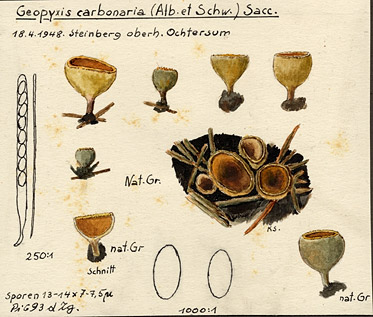 Geopyxis carbonaria (Alb. et Schw.) Sacc.
18.4.1948. Steinberg oberh. Ochtersum
Nat. Gr.
K.S.
250:1
nat. Gr
Schnitt
Sporen 13-14 x 7-7,5 µ
1000:1
nat. Gr